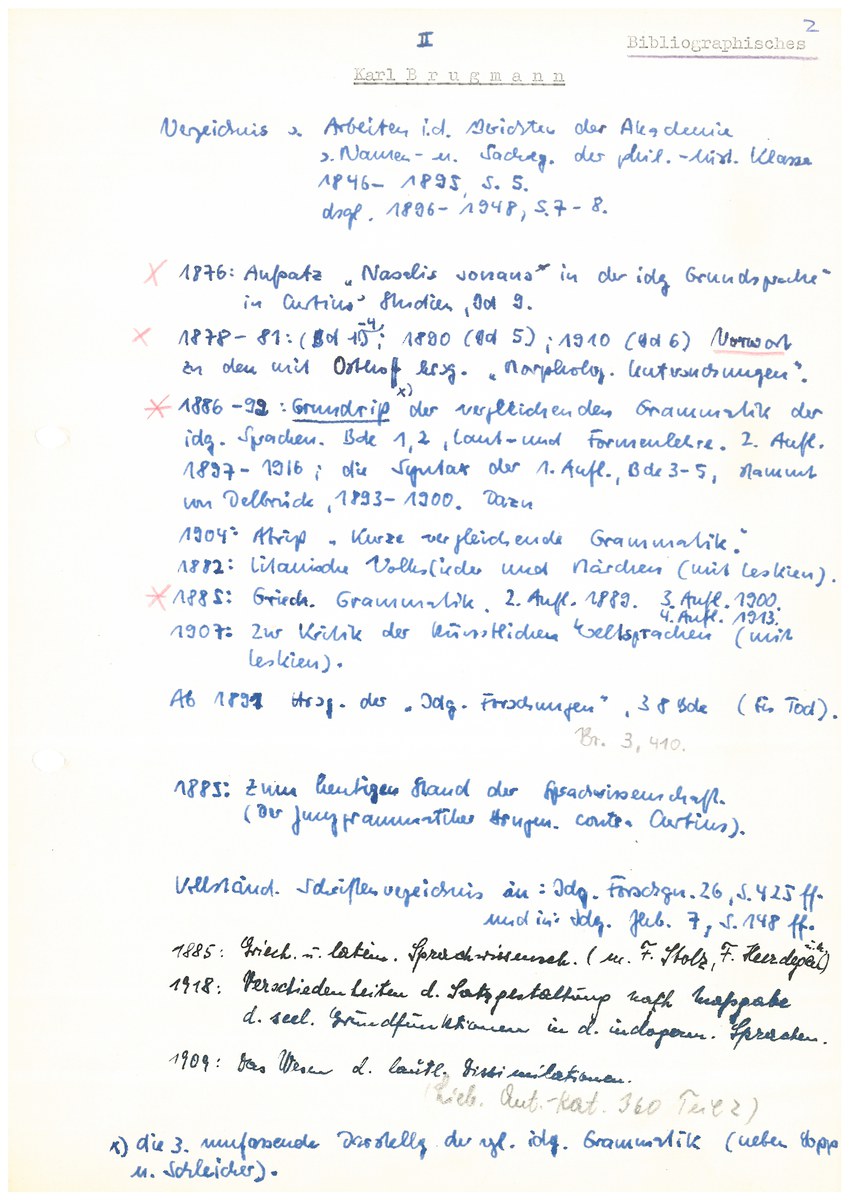 2
II
Bibliographisches
Karl Brugmann
Verzeichnis s. Arbeiten i.d. Berichten der Akademie
s. Namen- u. Sachreg. der phil.-hist. Klasse
1846- 1895, S. 5.
dsgl. 1896- 1948, S. 7- 8.
1876: Aufsatz „Nasalis sonans" in der idg Grundsprache"
in Curtius' Studien, Bd 9.
1878 - 81: (Bd 1-4); 1890 (Bd 5); 1910 (Bd 6) Vorwort
zu den mit Osthoff hrsg. „Morpholog. Untersuchungen".
x)
1886 - 92: Grundriß der vergleichenden Grammatik der
idg. Sprachen. Bde 1,2, Laut- und Formenlehre. 2. Aufl.
1897- 1916; die Syntax der 1. Aufl., Bde 3-5, stammt
von Delbrück, 1893- 1900. Dazu
1904: Abriß „Kurze vergleichende Grammatik".
1882: Litauische Volkslieder und Märchen (mit Leskien).
1885: Griech. Grammatik. 2. Aufl. 1889. 3. Aufl. 1900.
4. Aufl. 1913.
1907: Zur Kritik der künstlichen Weltsprachen (mit
Leskien).
Ab 1891 Hrsg. der „Idg. Forschungen", 38 Bde (bis Tod).
Br. 3, 410.
1885: Zum heutigen Stand der Sprachwissenschaft.
(Der Junggrammatiker Brugm. contra Curtius).
Vollständ. Schriftenverzeichnis in: Idg. Forschgn. 26, S. 425 ff.
und in: Idg. Jhb. 7, S. 148 ff.
1885: Griech. u. latein. Sprachwissensch. (m. F. Stolz, F. Heerdegen u.a.)
1918: Verschiedenheiten d. Satzgestaltung nach Maßgabe
d. seel. Grundfunktionen in d. indogerm. Sprachen.
1909: Das Wesen d. lautl. Dissimilationen.
(Lieb. Ant.-Kat. 360 Teil 2)
x) die 3. umfassende Darstellg der vgl. idg. Grammatik (neben Bopp
u. Schleicher).